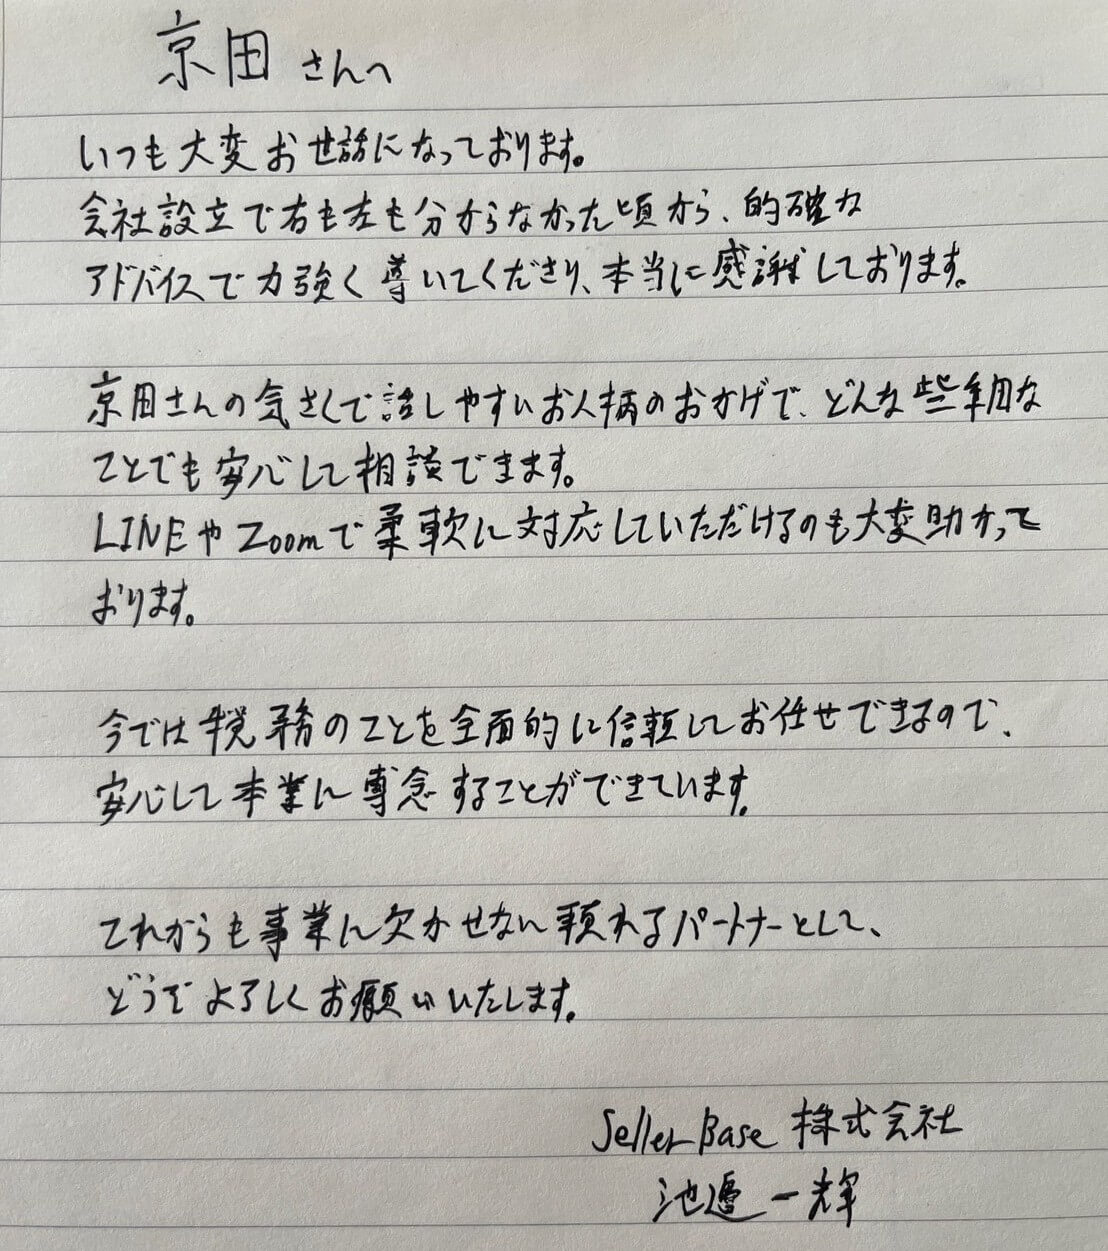 京田さんへ
いつも大変お世話になっております。
会社設立で右も左も分からなかった頃から、的確な
アドバイスで力強く導いてくださり、本当に感謝しております。
京田さんの気さくで話しやすいお人柄のおかげで、どんな些細な
ことでも安心して相談できます。
LINEやZoomで柔軟に対応していただけるのも大変助かって
おります。
今では税務のことを全面的に信頼してお任せできるので、
安心して本業に専念することができています。
これからも事業に欠かせない頼れるパートナーとして、
どうぞよろしくお願いいたします。
SellerBase 株式会社
池邉一輝